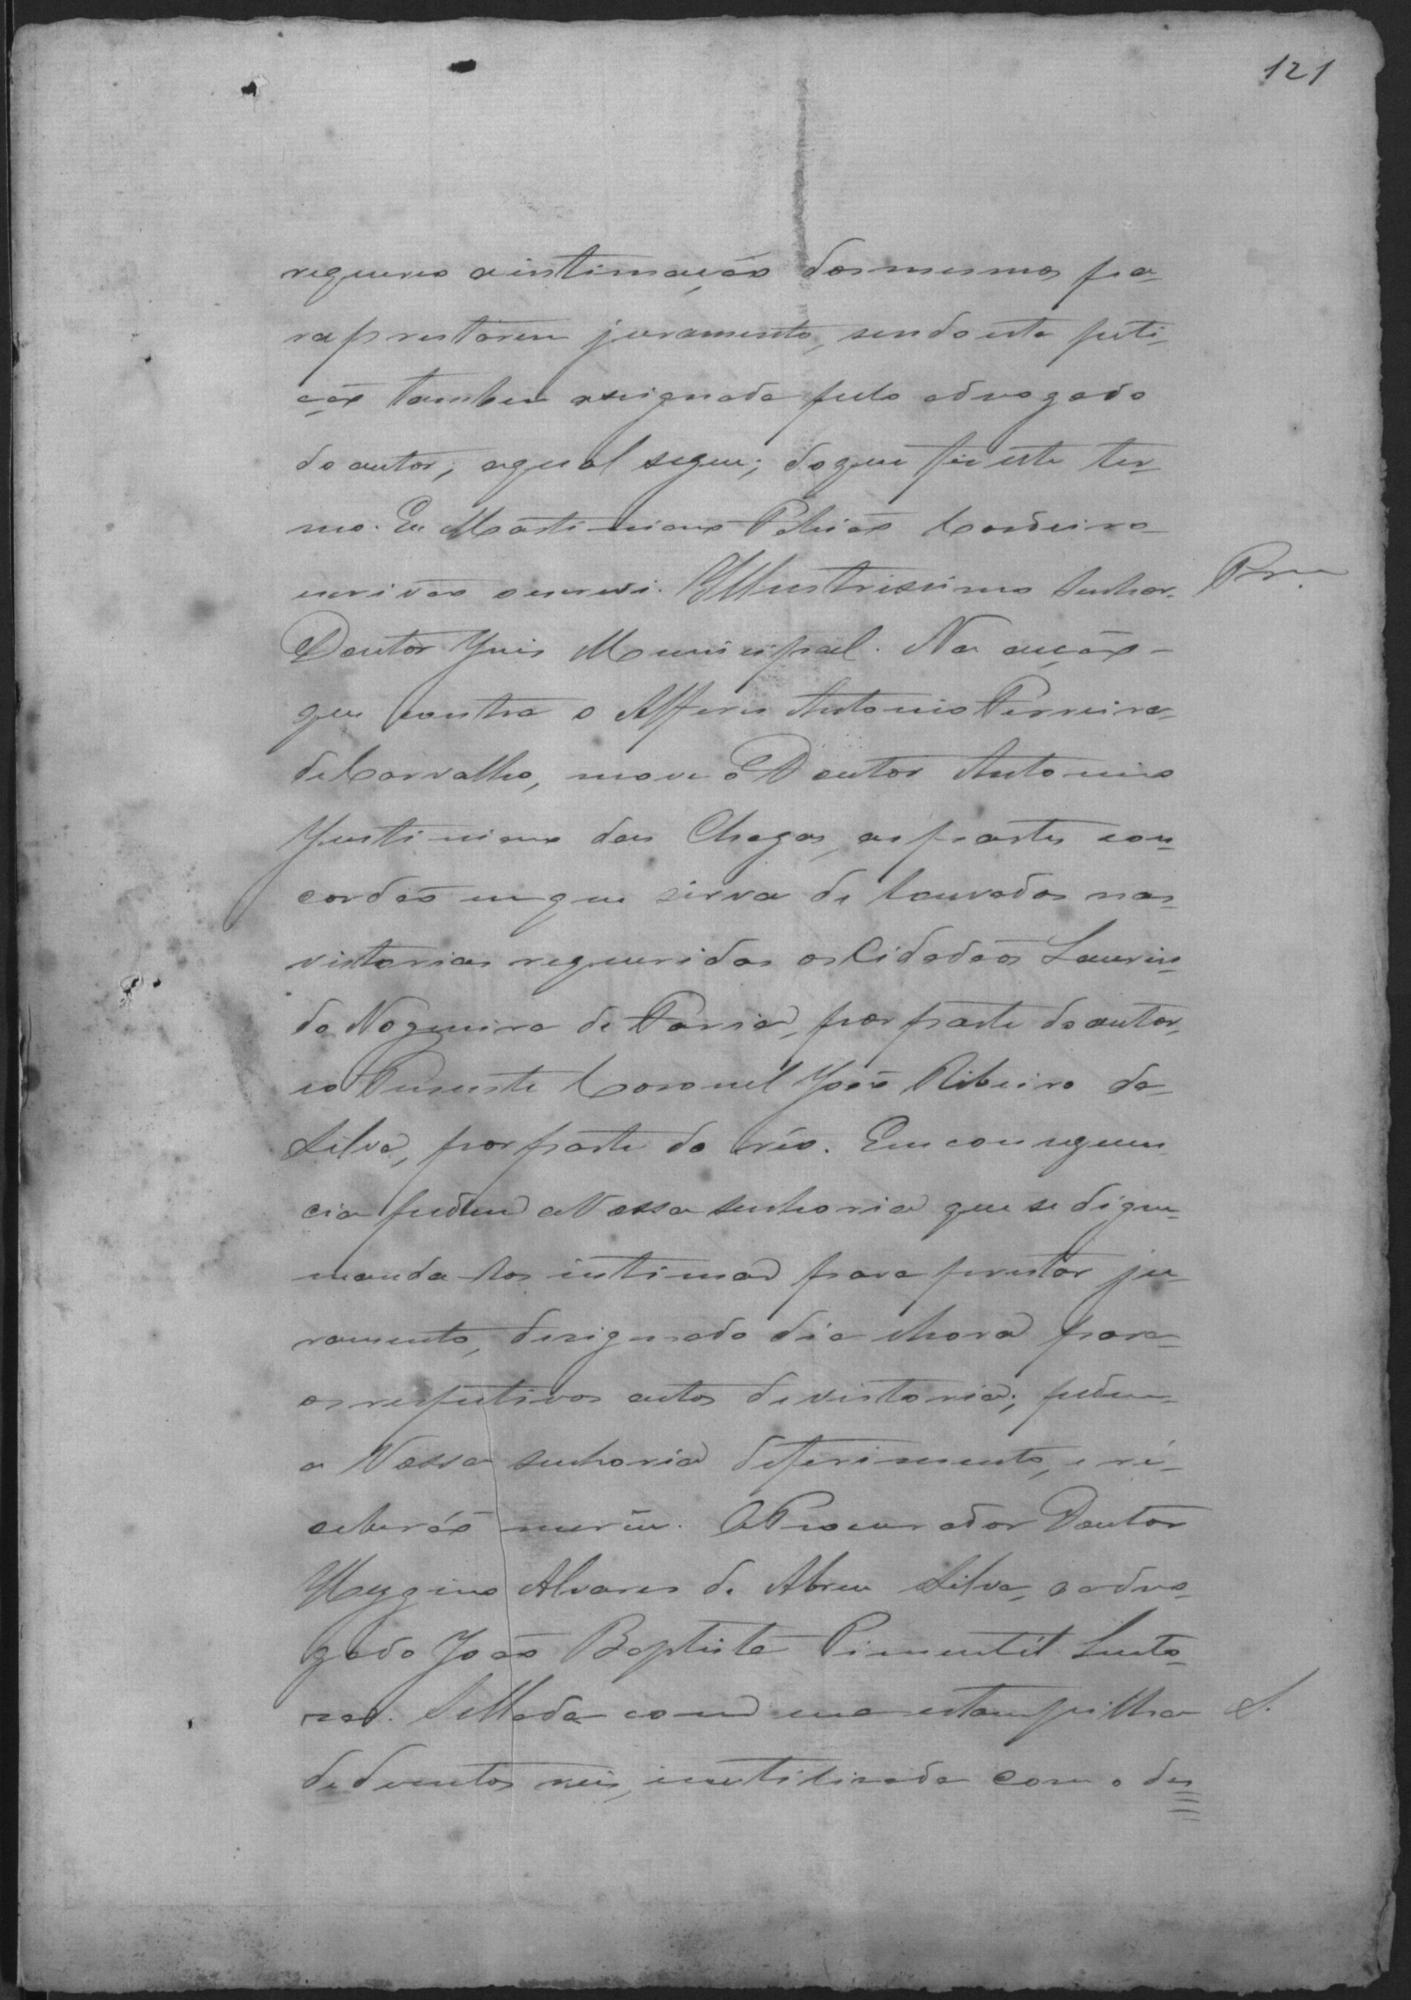 121
requereo a intimação dos mesmos pa-
ra prestarem juramento, sendo esta peti-
ção tambem assignada pelo advogado
do autor, a qual segue; do que fiz este ter-
mo. Eu Martiniano Cordeiro
escrivão o escrevi. Illustrissimo Senhor
Doutor Juis Municipal. Na acção
que contra o Alferes Antonio Ferreira
de Carvalho, move o Doutor Antonio
Justiniano das Chagas, as partes con-
cordão em que sirva de louvados nas
vistorias requeridas os Cidadãos Laurin-
do Nogueira de Faria, por parte do autor,
eo Tenente Coronel João Ribeiro da
Silva, por parte do réo. Em consequen-
cia pedem a Vossa Senhoria que se digne
manda-los intimar para prestar ju-
ramento, designado dia e hora para
os respectivos autos de vistoria; pedem
a Vossa Senhoria deferimento, e re-
ceberáõ mercê. O Procurador Doutor
Hyggino Alvares de Abreu Silva, o advo-
gado João Baptista Pimentel
Sellada com uma estampilha S.
de duzentos reis, inutilisada com o des